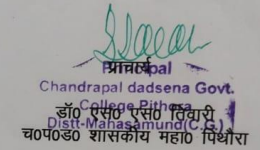 प्राचार्य
Principal
Chandrapal dadsena Govt.
College Pithora
डॉ० एस० एस० तिवारी
Distt-Mahasamund(C.G.)
च०प०ड० शासकीय महा० पिथौरा